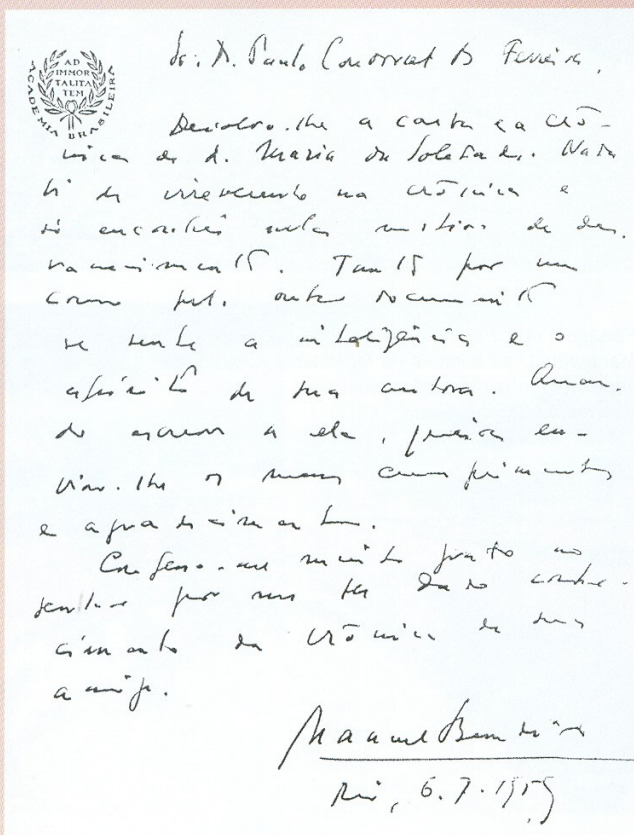 AD
IMMOR
TALITA
TEM
ACADEMIA BRASILEIRA
Sr. D. Paulo Ferreira.
Devolvo-lhe a carta e a crô-
nica de d. Maria da Soledade. Nada
vi de irreverente na crônica e
só encontrei nela motivos de des-
vanecimento. Tanto por um
como pelo outro documento
se sente a inteligência e o
espírito de sua autora. Quan-
do escrever a ela, queira en-
viar-lhe os meus cumprimentos
e agradecimentos.
Confesso-me muito grato ao
senhor por me ter dado conhe-
cimento da crônica de sua
amiga.
Manuel Bandeira
Rio, 6.7.1959